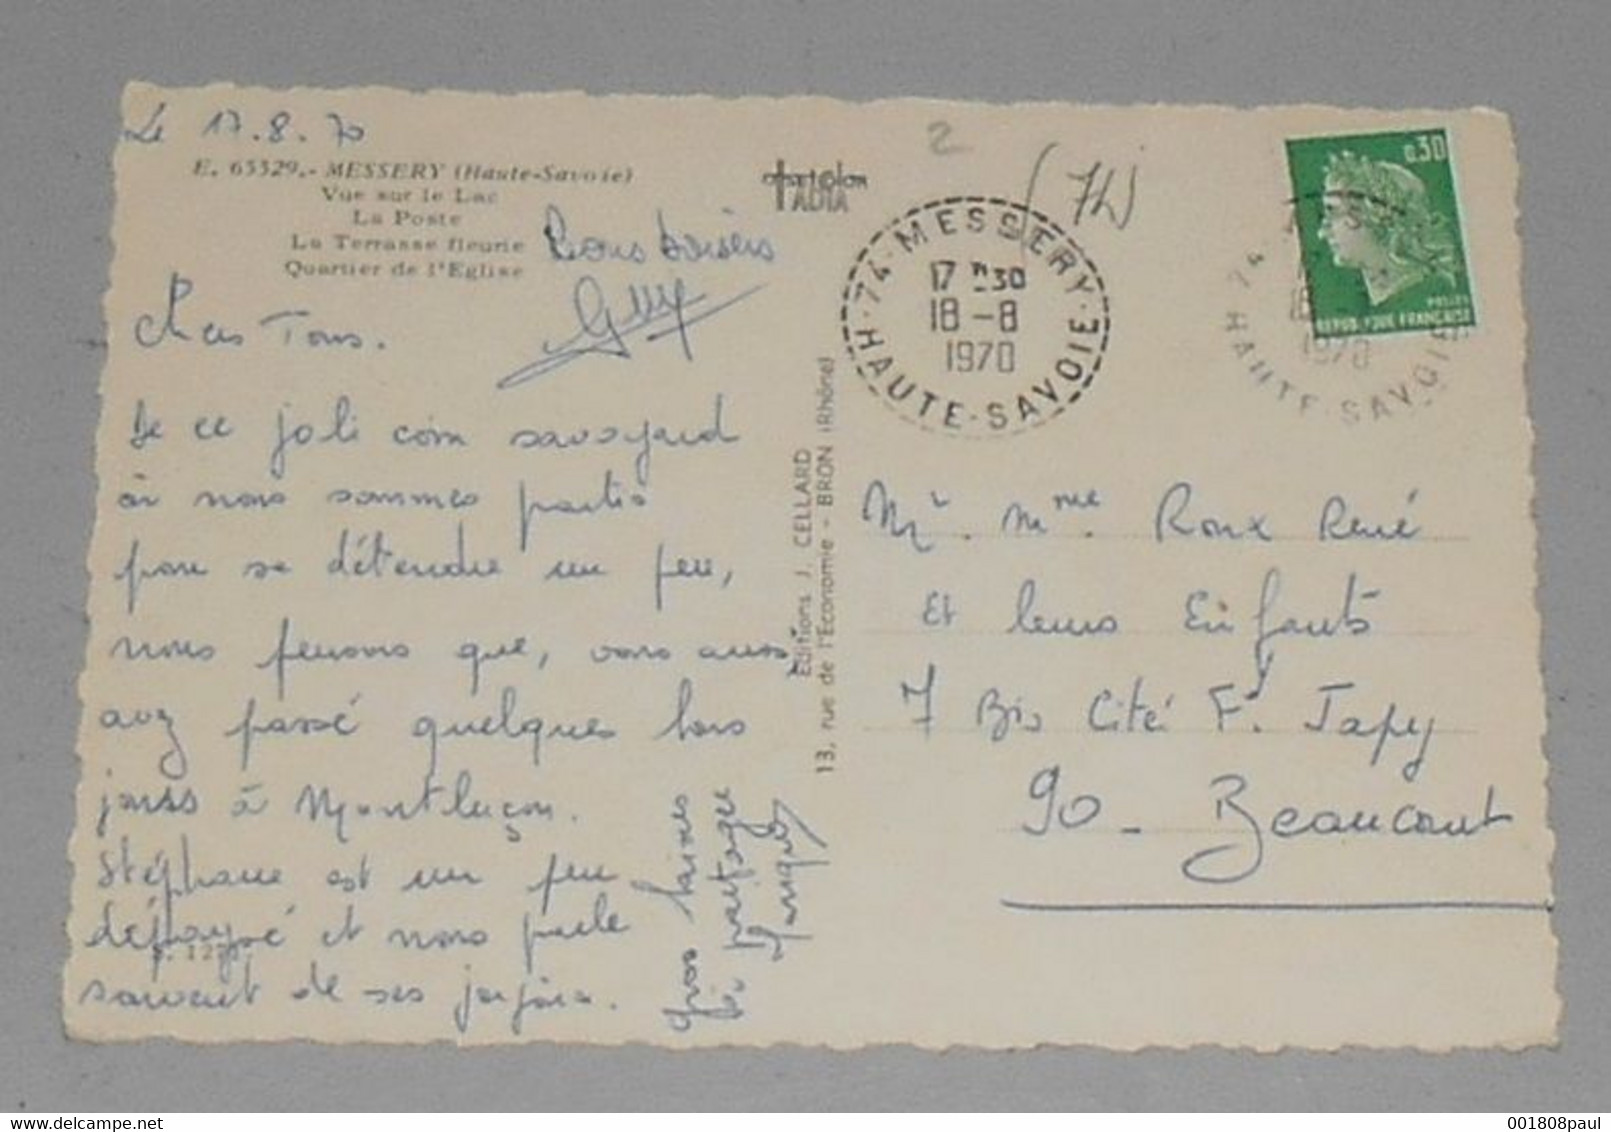 Le 17.8.70
E. 65529.- MESSERY (Haute-Savoie)
Vue sur le Lac
La Poste
La Terrasse fleurie
Quartier de l'Eglise
Bons baisers
Guy
Chers Tous.
De ce joli coin savoyard
où nous sommes partis
pour se détendre un peu,
nous pensons que, vous aussi
avez passé quelques bons
jours à Montluçon.
Stéphane est un peu
dépaysé et nous parle
souvent de ses
Gros baisers
à partager
Editions J. CELLARD
13, rue de l'Economie - BRON (Rhône)
2
(74)
74 - MESSERY
17 H 30
18 - 8
1970
HAUTE-SAVOIE
0,30
POSTES
REPUBLIQUE FRANÇAISE
74
18
1970
HAUTE-SAVOIE
Mr. Mme. Roux René
Et leurs Enfants
7 Bis Cité F. Japy
90 - Beaucourt
001808paul